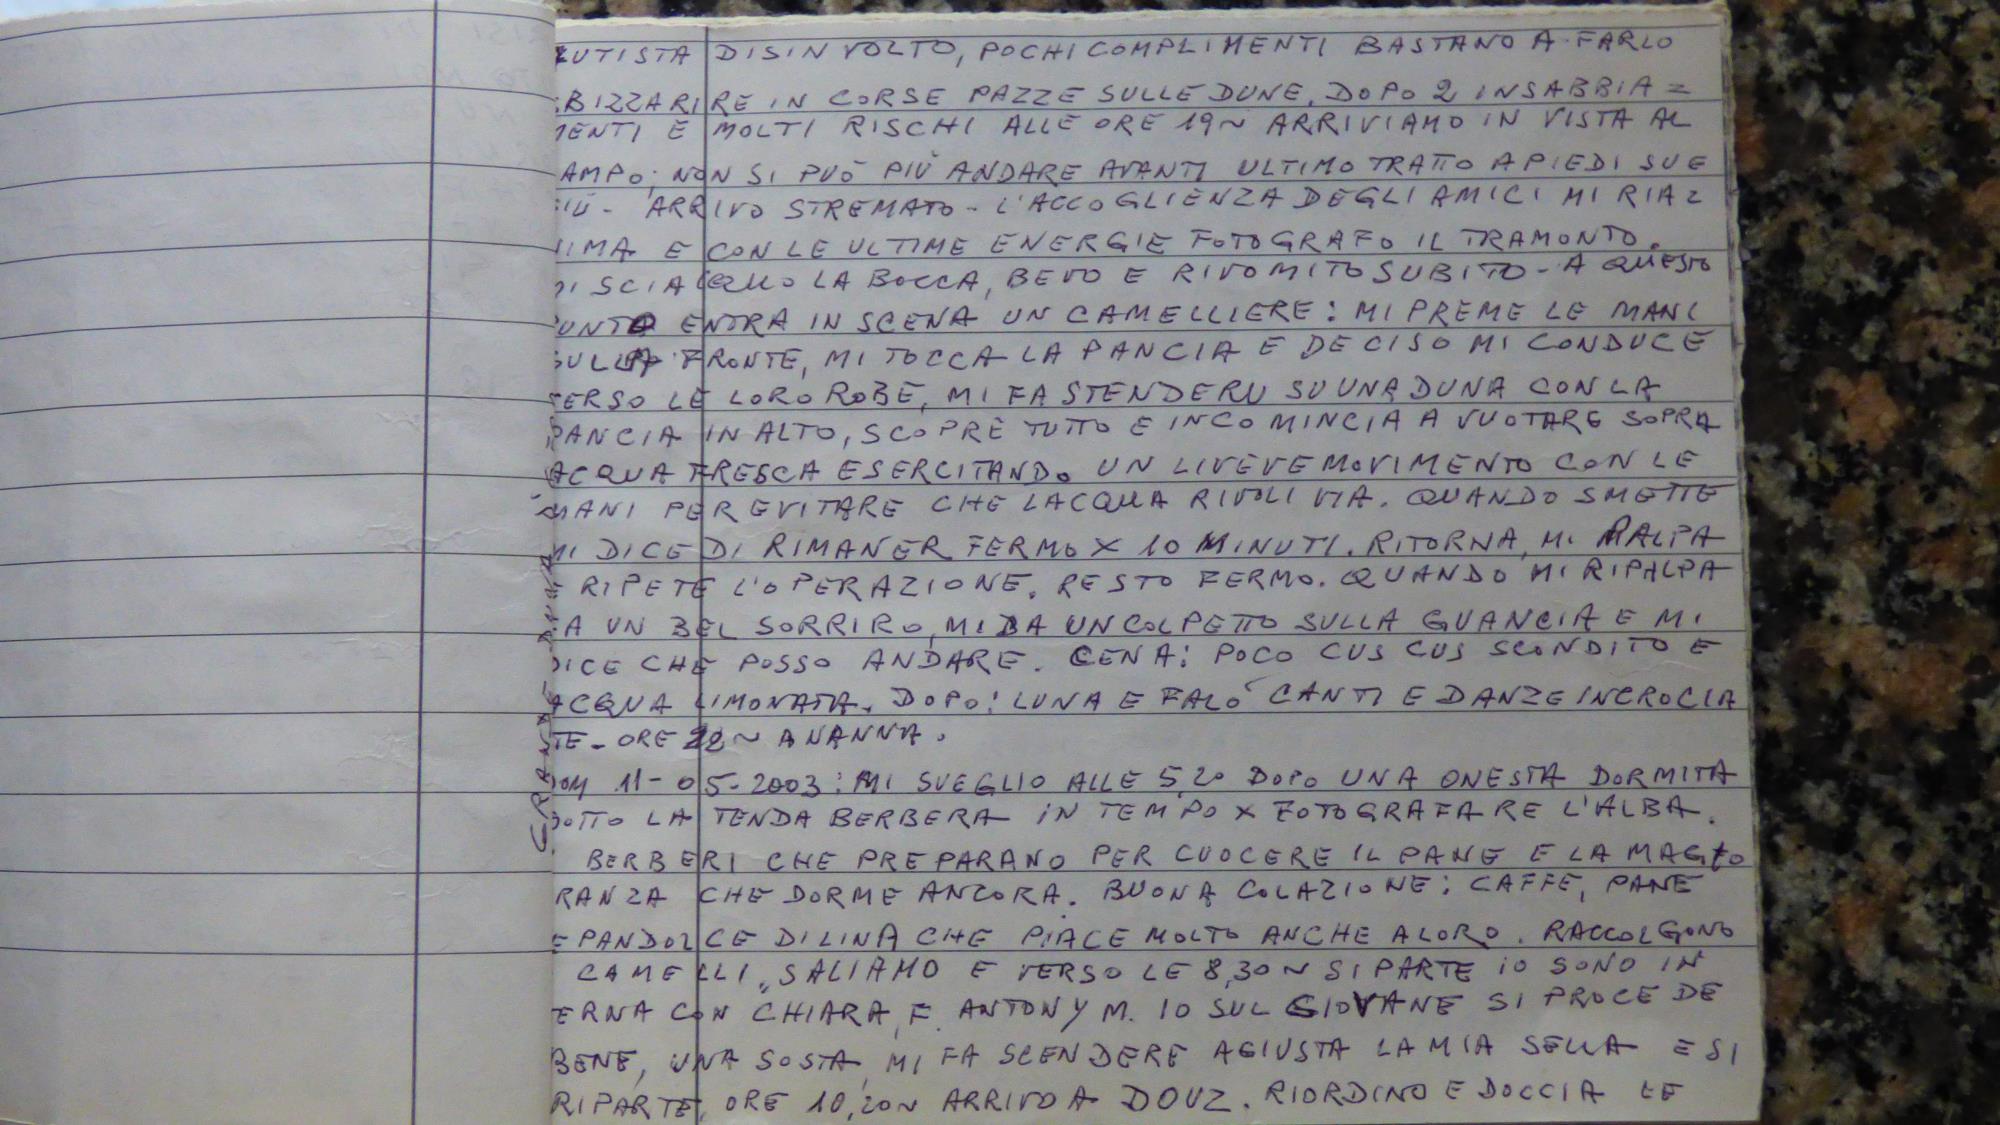 UTISTA DISINVOLTO, POCHI COMPLIMENTI BASTANO A FARLO
BIZZARIRE IN CORSE PAZZE SULLE DUNE. DOPO 2 INSABBIA=
MENTI E MOLTI RISCHI ALLE ORE 19~ ARRIVIAMO IN VISTA AL
AMPO; NON SI PUÒ PIÙ ANDARE AVANTI ULTIMO TRATTO A PIEDI SU E
GIÙ - ARRIVO STREMATO - L'ACCOGLIENZA DEGLI AMICI MI RIA=
NIMA E CON LE ULTIME ENERGIE FOTOGRAFO IL TRAMONTO.
MI SCIAQUO LA BOCCA, BEVO E RIVOMITO SUBITO - A QUESTO
PUNTO ENTRA IN SCENA UN CAMELLIERE: MI PREME LE MANI
SULLA FRONTE, MI TOCCA LA PANCIA E DECISO MI CONDUCE
VERSO LE LORO ROBE, MI FA STENDERU SU UNA DUNA CON LA
PANCIA IN ALTO, SCOPRE TUTTO E INCOMINCIA A VUOTARE SOPRA
ACQUA FRESCA ESERCITANDO UN LIVEVE MOVIMENTO CON LE
MANI PER EVITARE CHE LACQUA RIVOLI VIA. QUANDO SMETTE
MI DICE DI RIMANER FERMO X 10 MINUTI. RITORNA, MI PALPA
E RIPETE L'OPERAZIONE. RESTO FERMO. QUANDO MI RIPALPA
FA UN BEL SORRIRO, MI DA UN COLPETTO SULLA GUANCIA E MI
DICE CHE POSSO ANDARE. CENA: POCO CUS CUS SCONDITO E
ACQUA LIMONATA. DOPO: LUNA E FALO' CANTI E DANZE INCROCIA
TE - ORE 22~ A NANNA.
DOM 11-05-2003: MI SVEGLIO ALLE 5,20 DOPO UNA ONESTA DORMITA
SOTTO LA TENDA BERBERA IN TEMPO X FOTOGRAFARE L'ALBA.
BERBERI CHE PREPARANO PER CUOCERE IL PANE E LA MAGGIO
RANZA CHE DORME ANCORA. BUONA COLAZIONE: CAFFE, PANE
E PANDOLCE DI LINA CHE PIACE MOLTO ANCHE A LORO. RACCOLGONO
CAMELLI, SALIAMO E VERSO LE 8,30~ SI PARTE IO SONO IN
TERNA CON CHIARA, F. ANTONY M. IO SUL GIOVANE SI PROCEDE
BENE, UNA SOSTA, MI FA SCENDERE AGIUSTA LA MIA SELLA E SI
RIPARTE, ORE 10,20~ ARRIVO A DOUZ. RIORDINO E DOCCIA LE
GRANDE DUNA